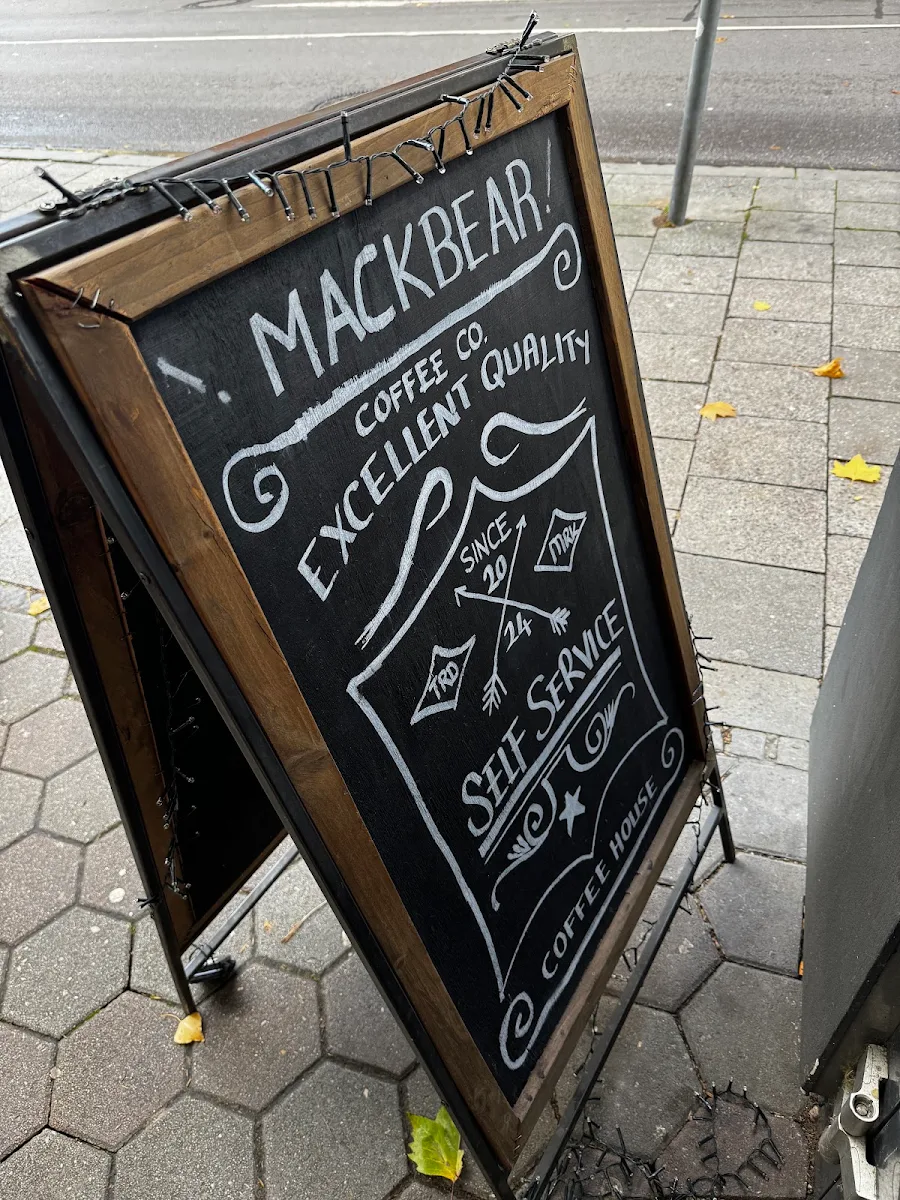 MACKBEAR!
COFFEE CO.
EXCELLENT QUALITY
SINCE
20
MRK
24
TRD
SELF SERVICE
COFFEE HOUSE